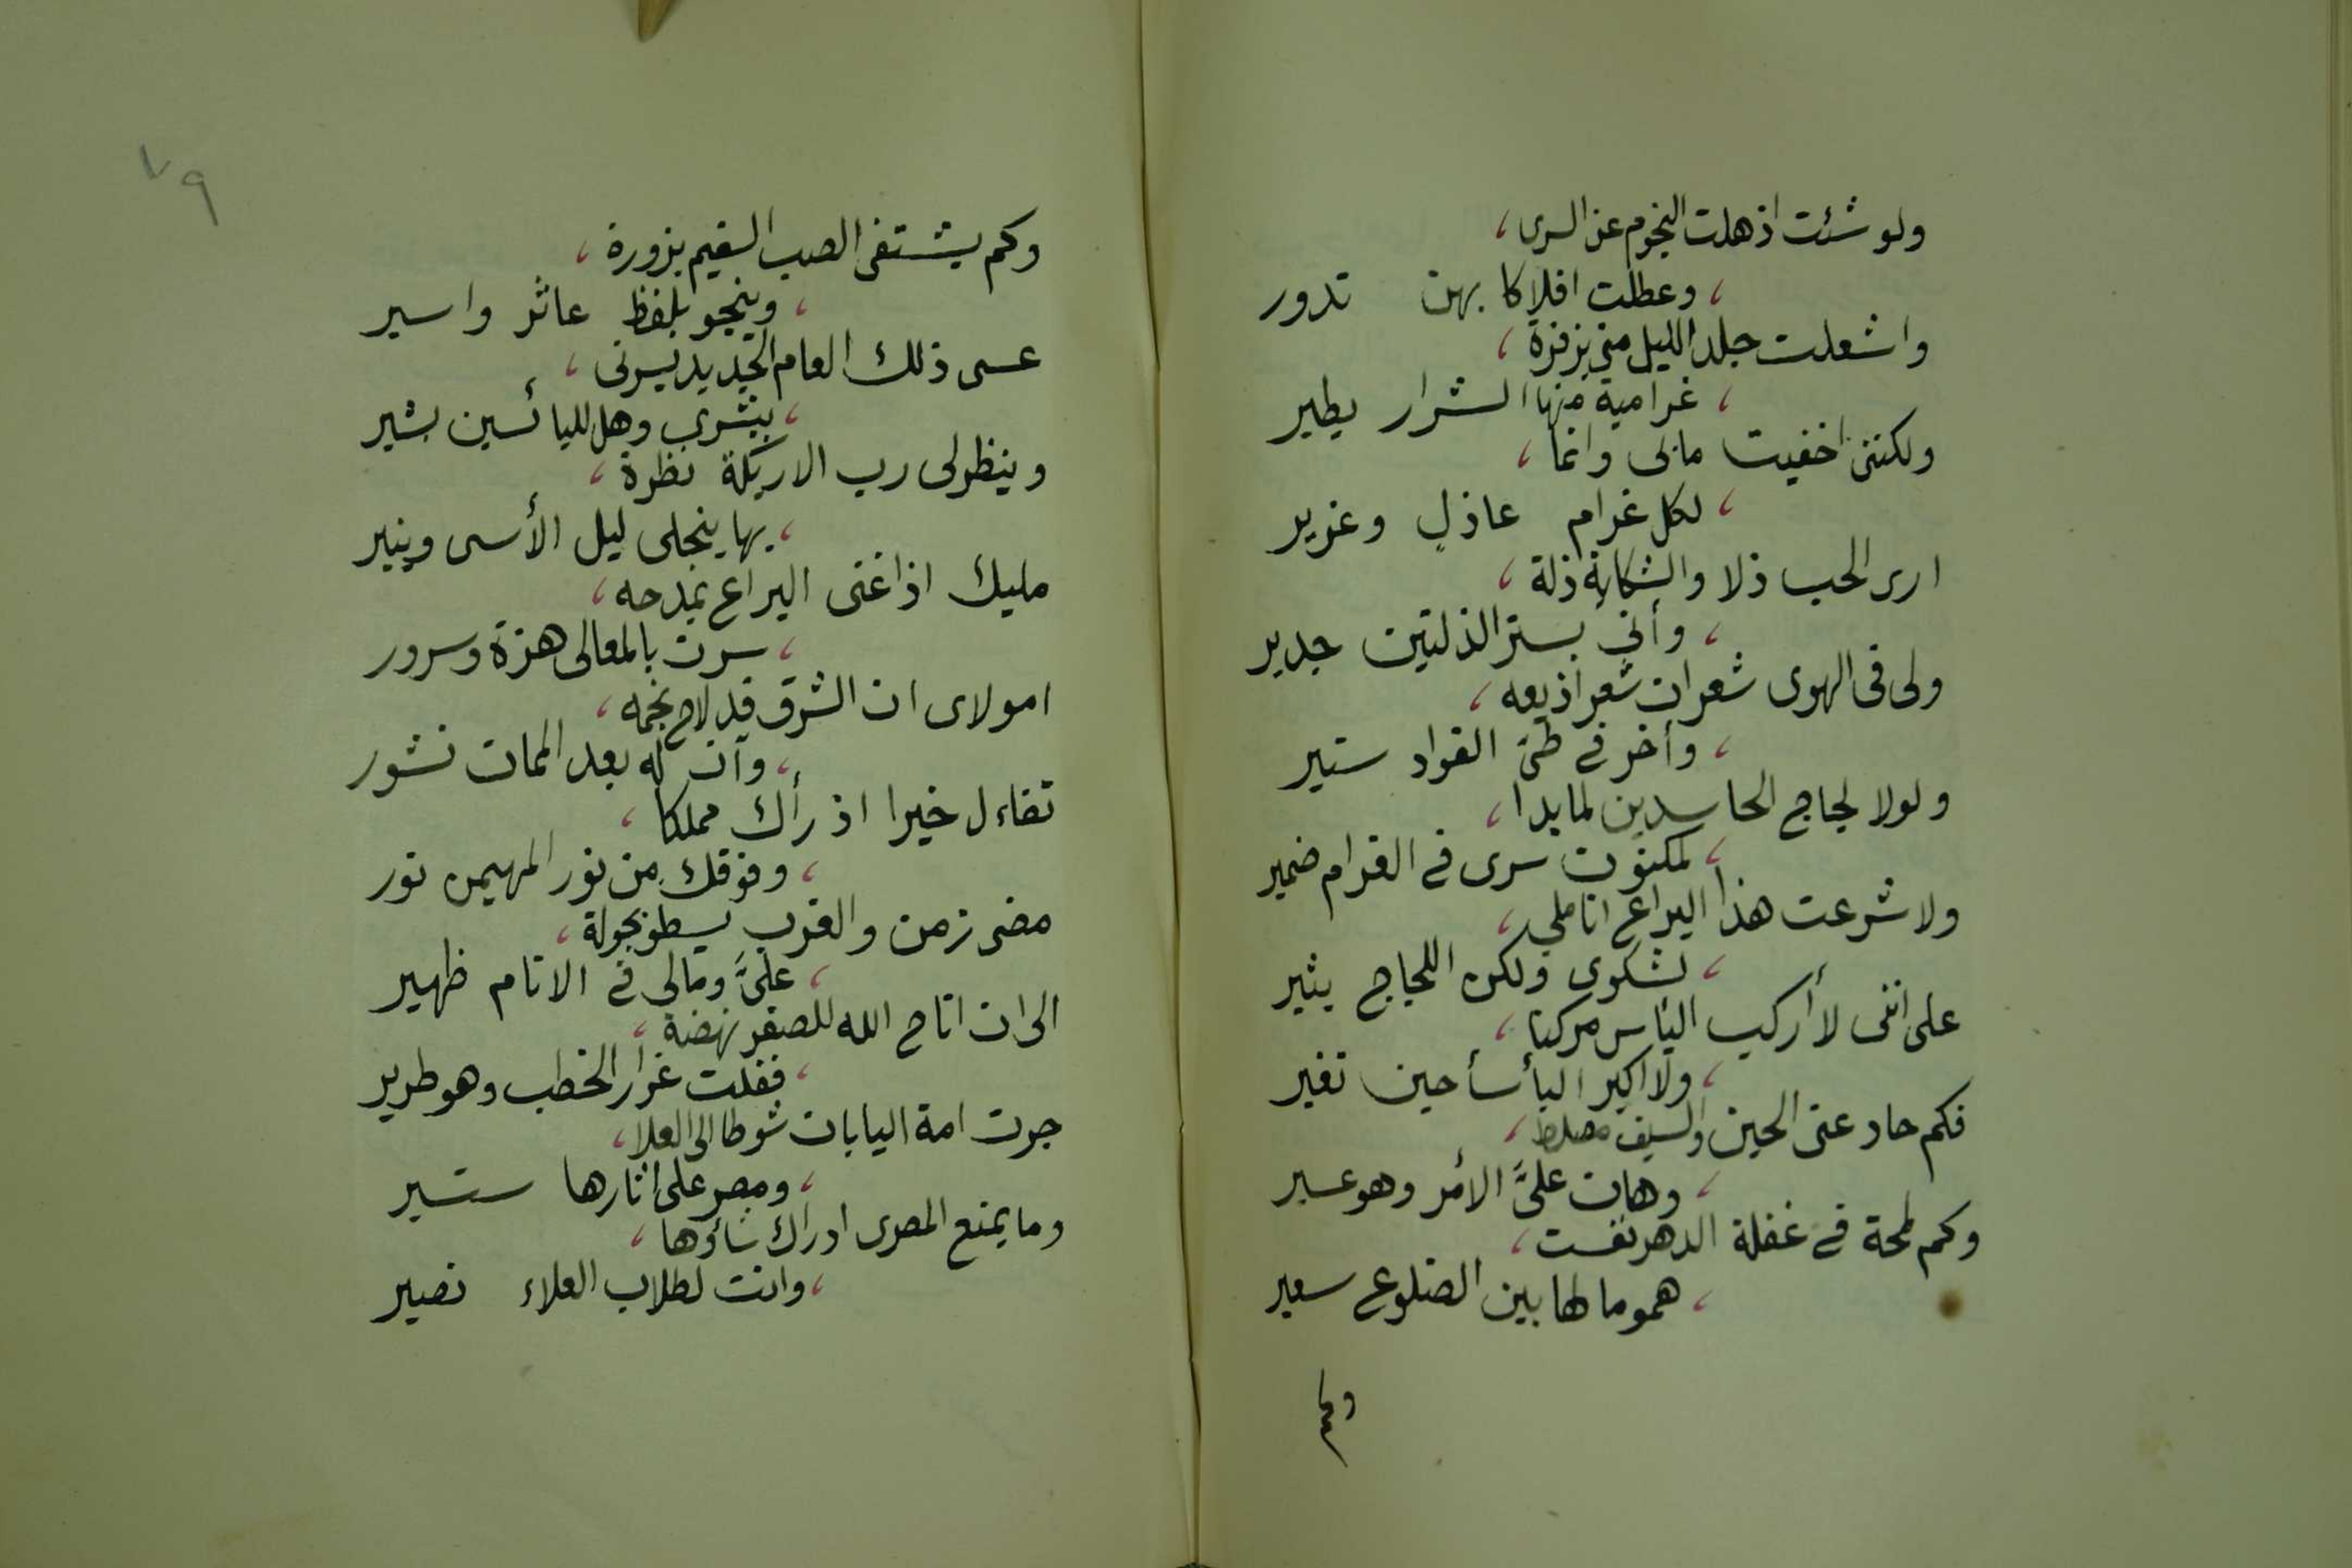 ولو شئت اذهلت النجوم عن السرى،
، وعطلت افلاكا بهن تدور
واشعلت جلد الليل منى بزفرة،
، غرامية منها الشرار يطير
ولكننى اخفيت مابى وانما،
، لكل غرام عاذل وعذير
ارى الحب ذلا والشكاية ذلة،
، وأنى بستر الذلتين جدير
ولى فى الهوى شعران شعر اذيعه،
، وأخر فى طىّ الفواد ستير
ولولا لجاج الحاسدين لما بدا،
، لمكنون سرى فى الغرام ضمير
ولا شرعت هذا اليراع اناملى،
، لشكوى ولكن اللجاج يثير
على اننى لا أركب اليأس مركبا،
، ولا اكبر البأسأ حين تغير
فكم حاد عنى الحين والسيف مصلط،
، وهان علىّ الأمر وهو عسير
وكم لمحة فى غفلة الدهر نفست،
، هموما لها بين الضلوع سعير
وكم
٧٩
وكم يشتفى الصب السقيم بزورة،
، وينجو بلفظ عاثر واسير
عسى ذلك العام الجديد يسرنى،
، ببشرى وهل لليائسين بشير
وينظر لى رب الاريكة نظرة،
، بها ينجلى ليل الأسى وينير
مليك اذا غنى اليراع بمدحه،
، سرت بالمعالى هزة وسرور
امولاى ان الشرق قد لاح نجمه،
، وآن له بعد الممات نشور
تفاءل خيرا اذ رأك مملكا،
، وفوقك من نور المهيمن نور
مضى زمن والغرب يسطو بحولة،
، علىّ ومالى فى الانام ظهير
الى ان اتاح الله للصقر نهضة،
، ففلت غرار الخطب وهو طرير
جرت امة اليابان شوطا الى العلا،
، ومصر على اثارها ستسير
وما يمنع المصرى ادراك شاؤها،
، وانت لطلاب العلاء نصير